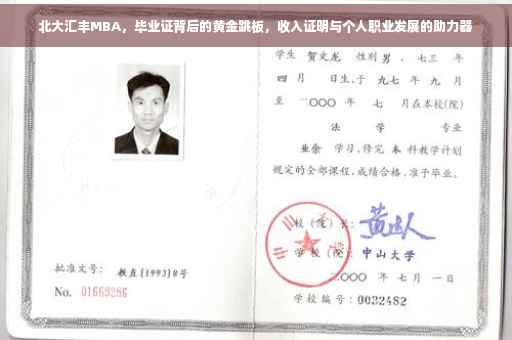 北大汇丰MBA，毕业证背后的黄金跳板，收入证明与个人职业发展的助力器
学生 贺文龙 性别 男，七三 年
四 月 日生，于 九七 年 九 月
至 二〇〇〇 年 七 月在本校(院)
法 学 专业
业余 学习，修完 本 科教学计划
规定的全部课程，成绩合格，准予毕业。
校（院）长：
学 校（院）：中山大学
二〇〇〇 年 七 月 一 日
批准文号： 教直[1993]8号
No. 01669286
学校编号：0032482